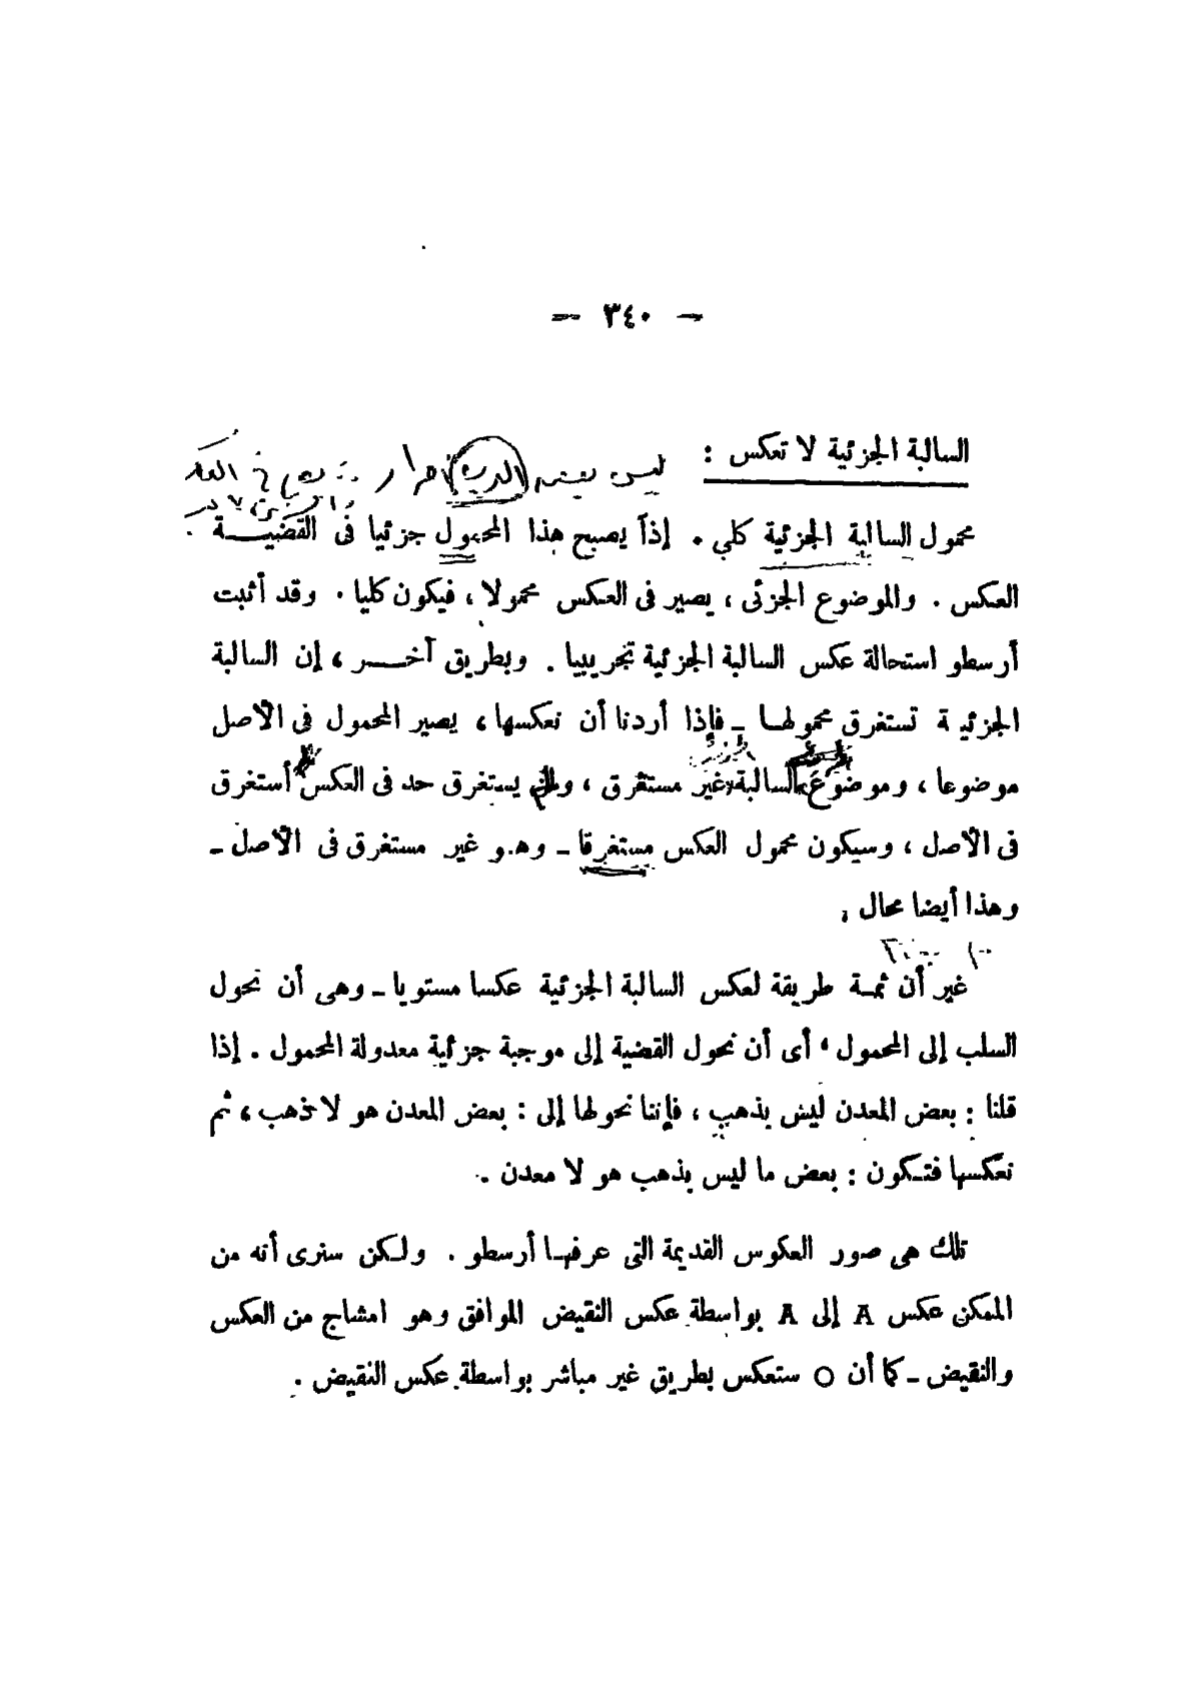 — ٣٤٠ —
السالبة الجزئية لا تعكس :
ليس بعض
محمول السالبة الجزئية كلي . إذاً يصبح هذا المحمول جزئيا فى القضيــة
العكس . والموضوع الجزئى ، يصير فى العكس محمولا ، فيكون كليا . وقد أثبت
أرسطو استحالة عكس السالبة الجزئية تجريبيا . وبطريق آخــر ، إن السالبة
الجزئية تستغرق محمولهـا ـ فإذا أردنا أن نعكسها ، يصير المحمول فى الأصل
موضوعا ، وموضوع السالبة غير مستغرق ، يستغرق حد فى العكس أستغرق
فى الأصل ، وسيكون محمول العكس مستغرقا ـ وهو غير مستغرق فى الأصل ـ
وهذا أيضا محال .
غير أن ثمـة طريقة لعكس السالبة الجزئية عكسا مستويا ـ وهى أن نحول
السلب إلى المحمول ، أى أن نحول القضية إلى موجبة جزئية معدولة المحمول . إذا
قلنا : بعض المعدن ليس بذهب ، فإننا نحولها إلى : بعض المعدن هو لا ذهب ، ثم
نعكسها فتـكون : بعض ما ليس بذهب هو لا معدن .
تلك هى صور العكوس القديمة التى عرفهـا أرسطو . ولـكن سنرى أنه من
الممكن عكس A إلى A بواسطة عكس النقيض الموافق وهو امشاج من العكس
والنقيض ـ كما أن O ستعكس بطريق غير مباشر بواسطة عكس النقيض .